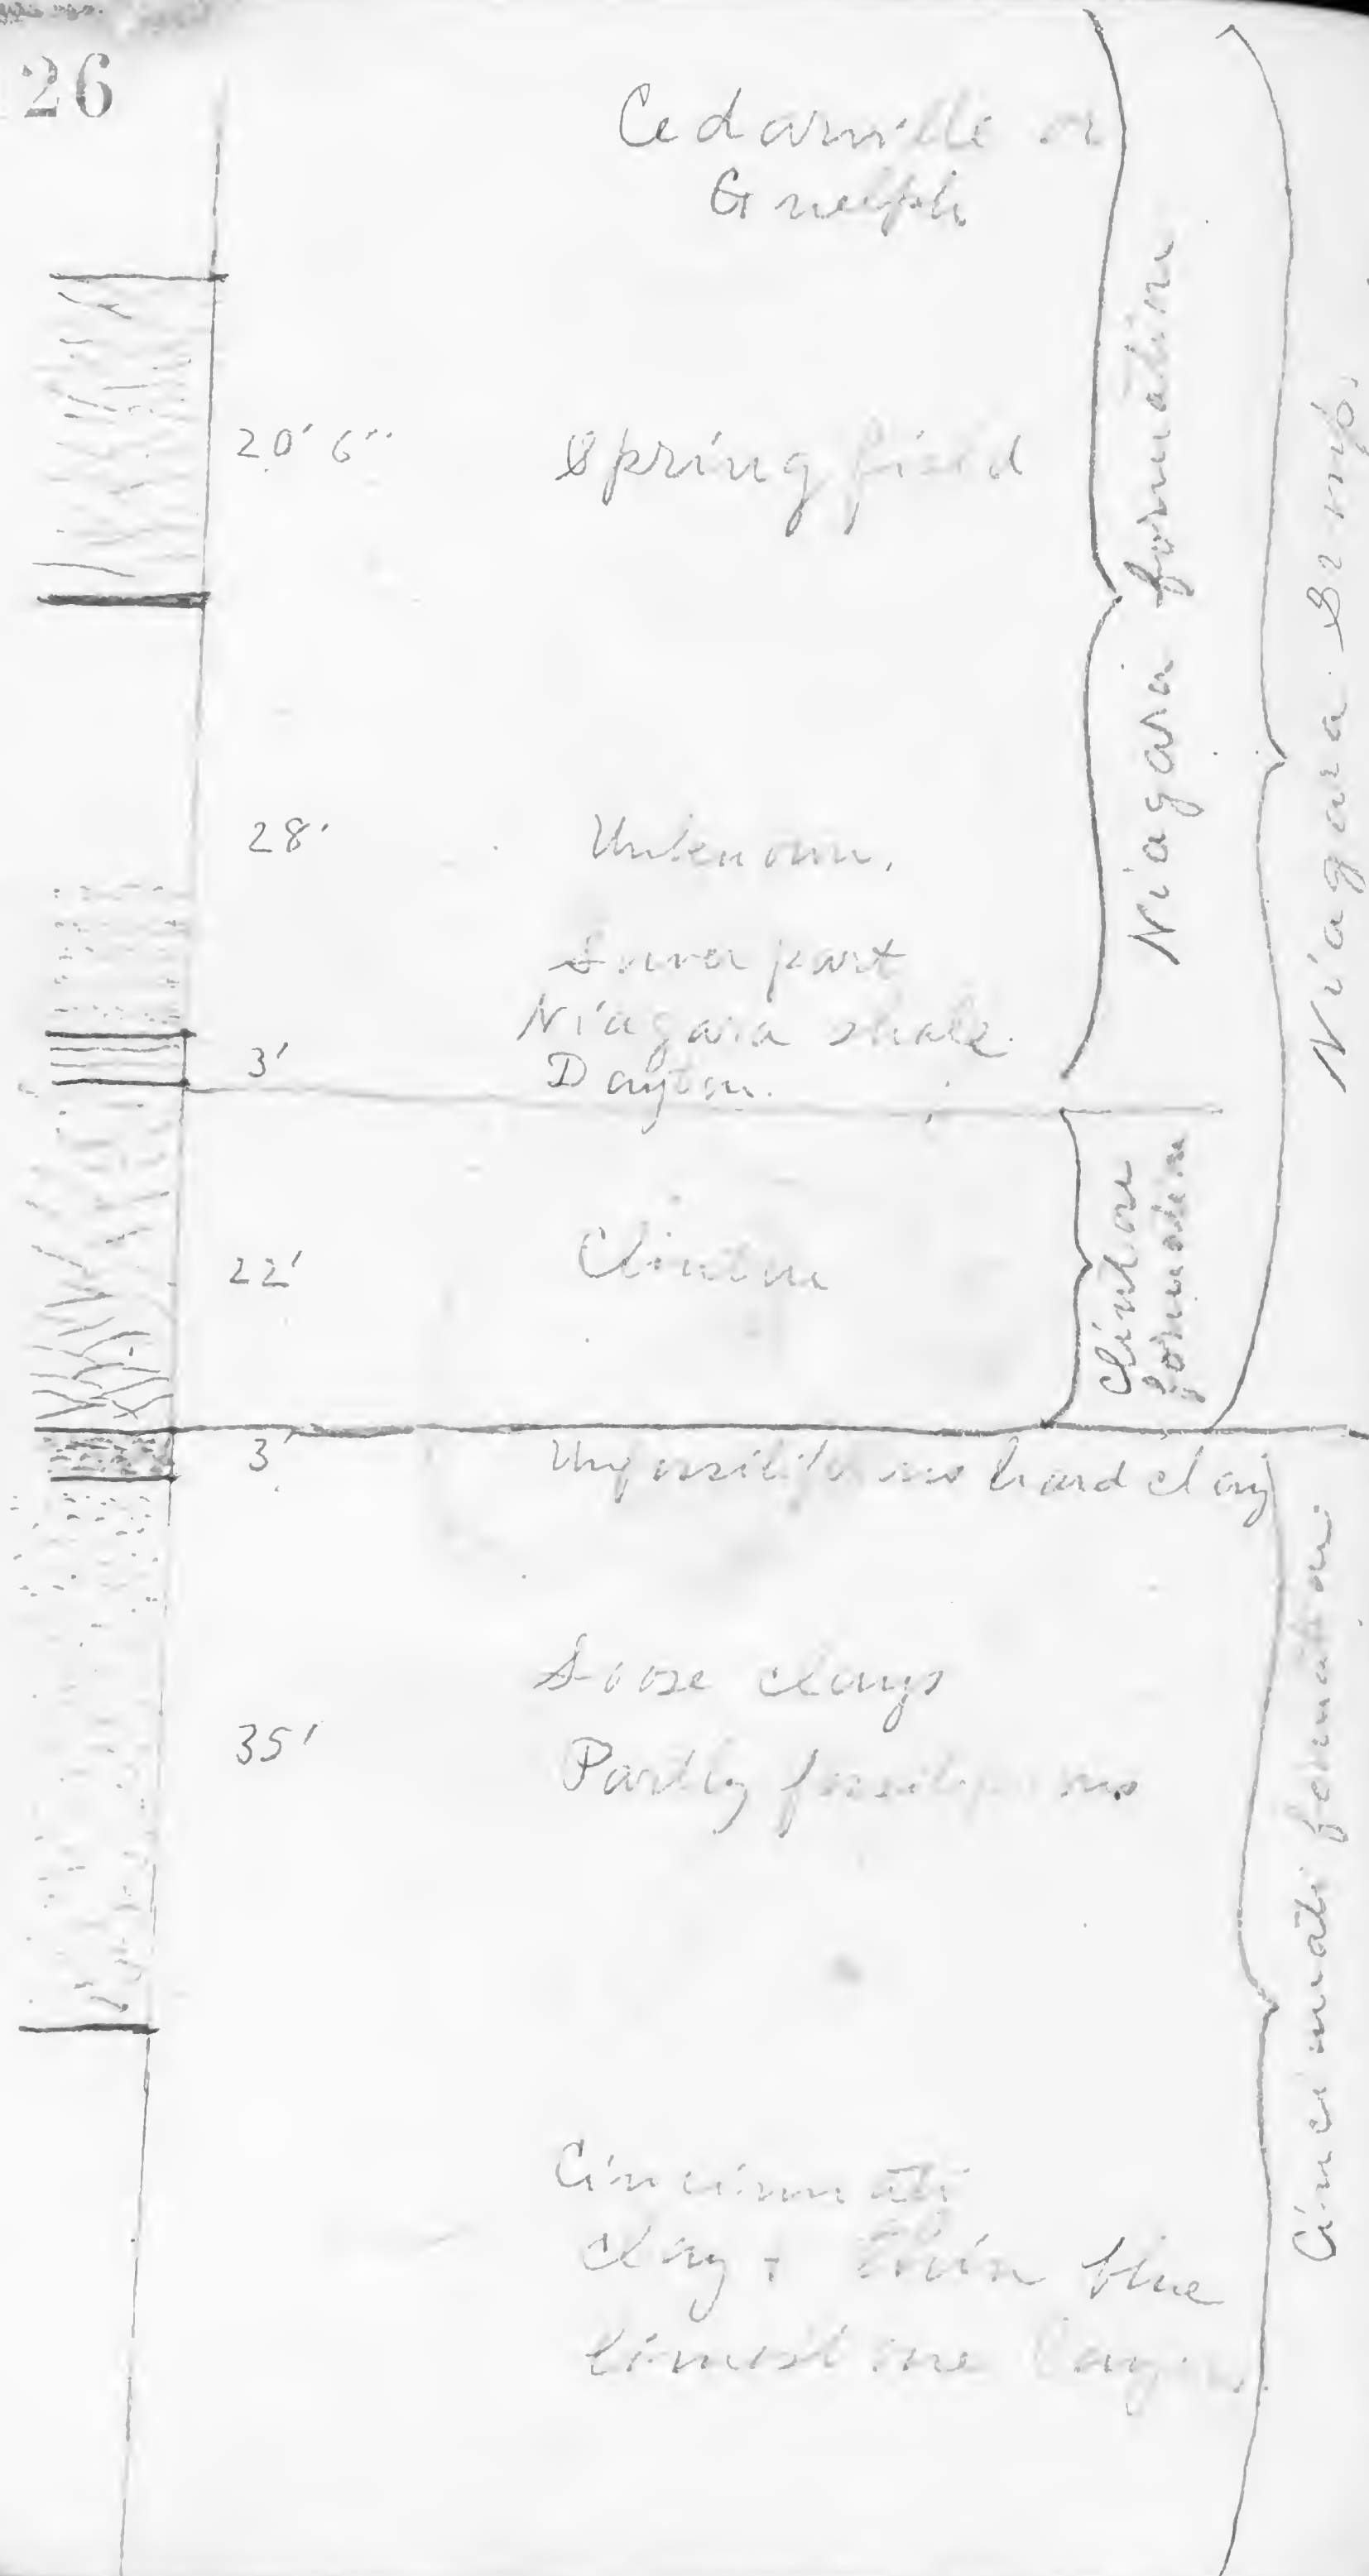 26
Cedarville or
Guelph.
20' 6"
Springfield
28'
Unknown.
Lower part
Niagara shale.
3'
Dayton.
22'
Clinton
3'
Unfossiliferous hard clay
Loose clays
35'
Partly fossiliferous
Cincinnati
clay + thin blue
limestone layers.
Niagara formation
Niagara Group.
Clinton
formation
Cincinnati formation